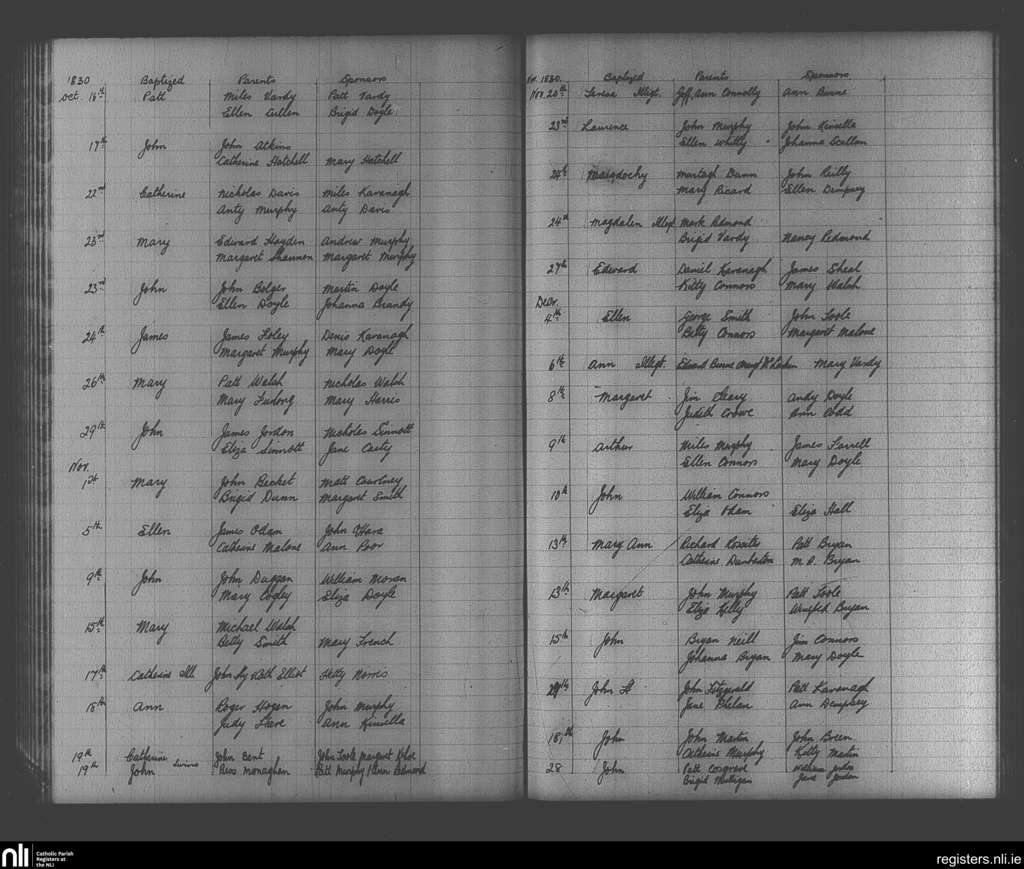 1830 Baptized Parents Sponsors
Oct. 16th Patt Miles Vardy Patt Vardy
Ellen Cullen Brigid Doyle
17th John John Atkins
Catherine Hatchell Mary Hatchell
22nd Catherine Nicholas Davis Miles Kavanagh
Anty Murphy Anty Davis
23rd Mary Edward Hayden Andrew Murphy
Margaret Shannon Margaret Murphy
23rd John John Bolger Martin Doyle
Ellen Doyle Johanna Brandy
24th James James Foley Denis Kavanagh
Margaret Murphy Mary Doyle
26th Mary Patt Walsh Nicholas Walsh
Mary Furlong Mary Harris
29th John James Jordon Nicholas Sinnott
Eliza Sinnott Jane Carty
Nov.
1st Mary John Becket Matt Courtney
Brigid Dunn Margaret Smith
5th Ellen James John O'Hara
Catherine Malone Ann Poor
9th John John Duggan William Moran
Mary Cogley Eliza Doyle
15th Mary Michael Walsh
Betty Smith Mary French
17th Catherine Ill. John Kath Elliot Hetty Norris
18th Ann Roger Hogan John Murphy
Judy Ann Kinsella
19th Catherine John Bent John Toole Margaret
19th John twins Bess Monaghan Patt Murphy Ann Redmond
Nov. 1830. Baptized Parents Sponsors
Nov. 20th Teresa Illegt. Jeff, Ann Connolly Ann Burne
23rd Laurence John Murphy John Kinsella
Ellen Whitty Johanna Scallon
24th Murtagh Dunn John Reilly
Mary Ricard Ellen Dempsey
24th Magdalen Illegt. Mark Redmond
Brigid Vardy Nancy Redmond
27th Edward Daniel Kavanagh James Sheal
Kitty Connors Mary Walsh
Decr.
4th Ellen George Smith John Toole
Betty Connors Margaret Malone
6th Ann Illegt. Edward Burne Mary Vardy
8th Margaret Jim Cleary Andy Doyle
Judith Crowe Ann Codd
9th Arthur Miles Murphy James Farrell
Ellen Connors Mary Doyle
10th John William Connors
Eliza Eliza Hall
13th Mary Ann Richard Rossiter Patt Bryan
Catherine M. A. Bryan
13th Margaret John Murphy Patt Toole
Eliza Kelly Winifred Bryan
15th John Bryan Neill Jim Connors
Johanna Bryan Mary Doyle
John John Fitzgerald Patt Kavanagh
Jane Phelan Ann Dempsey
18th John John Martin John Breen
Catherine Murphy Kitty Martin
28 John Patt Cosgrave William
Brigid Mulligan Jane Jordan
nli Catholic Parish
Registers at
the NLI
registers.nli.ie